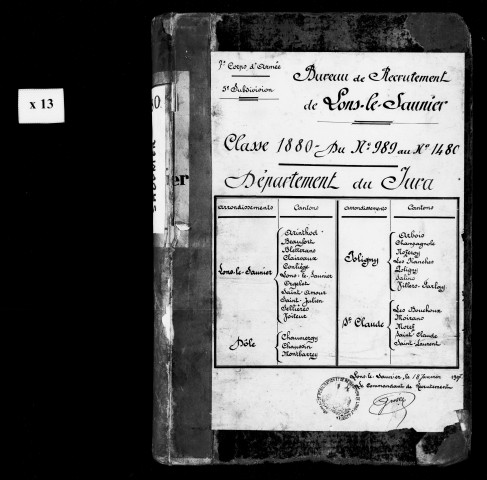 x 13
7e Corps d'Armée
5e Subdivision
Bureau de Recrutement
de Lons-le-Saunier
Classe 1880 - Du No 989 au No 1480
Département du Jura
Arrondissements
Cantons
Lons-le-Saunier
Arinthod
Beaufort
Bletterans
Clairvaux
Conliège
Lons-le-Saunier
Orgelet
Saint-Amour
Saint-Julien
Sellières
Voiteur
Dôle
Chaumergy
Chaussin
Montbarrey
Arrondissements
Cantons
Poligny
Arbois
Champagnole
Nozeroy
Les Planches
Poligny
Salins
Villers-Farlay
St Claude
Les Bouchoux
Moirans
Morez
Saint-Claude
Saint-Laurent
Lons-le-Saunier, le 18 Janvier
Le Commandant de Recrutement